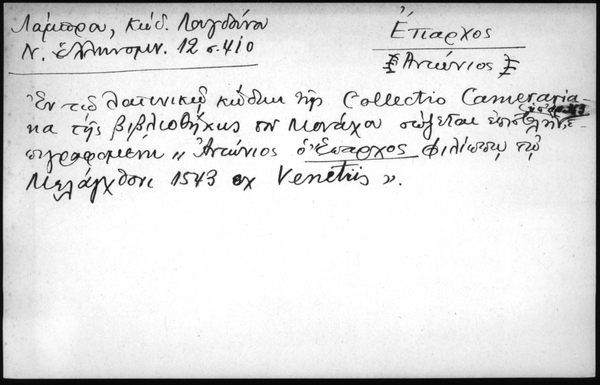 Λάμπρου, Κώδ. Λαγδάνου
Ν. Ἑλληνομν. 12, σ. 410
Ἔπαρχος
[Ἀντώνιος]
Ἐν τῷ λατινικῷ κώδικι τῆς Collectio Cameraria-
να τῆς βιβλιοθήκης τοῦ Μονάχου σῴζεται ἐπιστολὴ
ἐπιγραφομένη „ Ἀντώνιος ὁ Ἔπαρχος Φιλίππῳ τῷ
Μελάγχθονι 1543 ex Venetiis ".